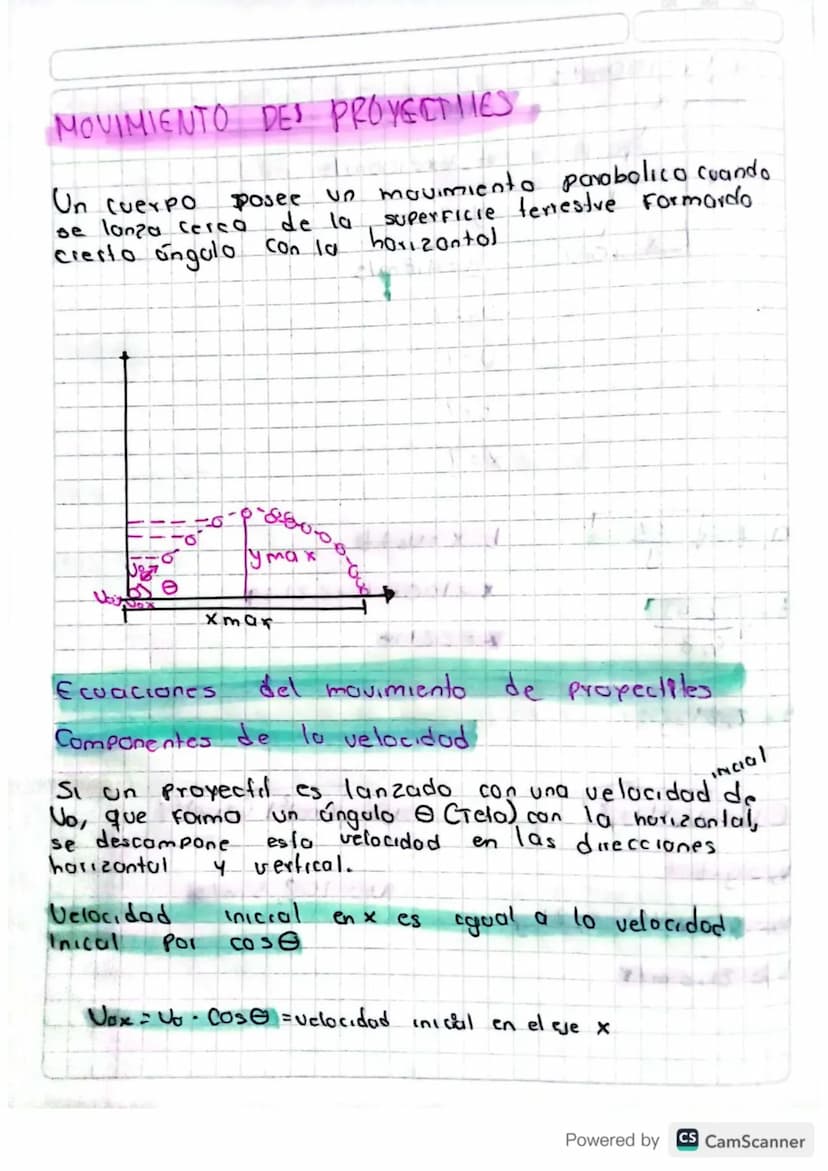 MOVIMIENTO DEL PROYECTILES
Un cuerpo posee un movimiento parabolico cuando
se lanza cerca de la superficie terrestre Formando
cierto ángulo con la horizontal
Ymax
Voy
Vox
θ
xmax
Ecuaciones del movimiento de proyectiles
Componentes de la velocidad
inicial
Si un proyectil es lanzado con una velocidad de
Vo, que Forma un ángulo θ (Teta) con la horizontal,
se descompone esta velocidad en las direcciones
horizontal y vertical.
Velocidad inicial en x es igual a la velocidad
Inical por cosθ
Vox = Vo · Cosθ = velocidad inicial en el eje x
Powered by CS CamScanner